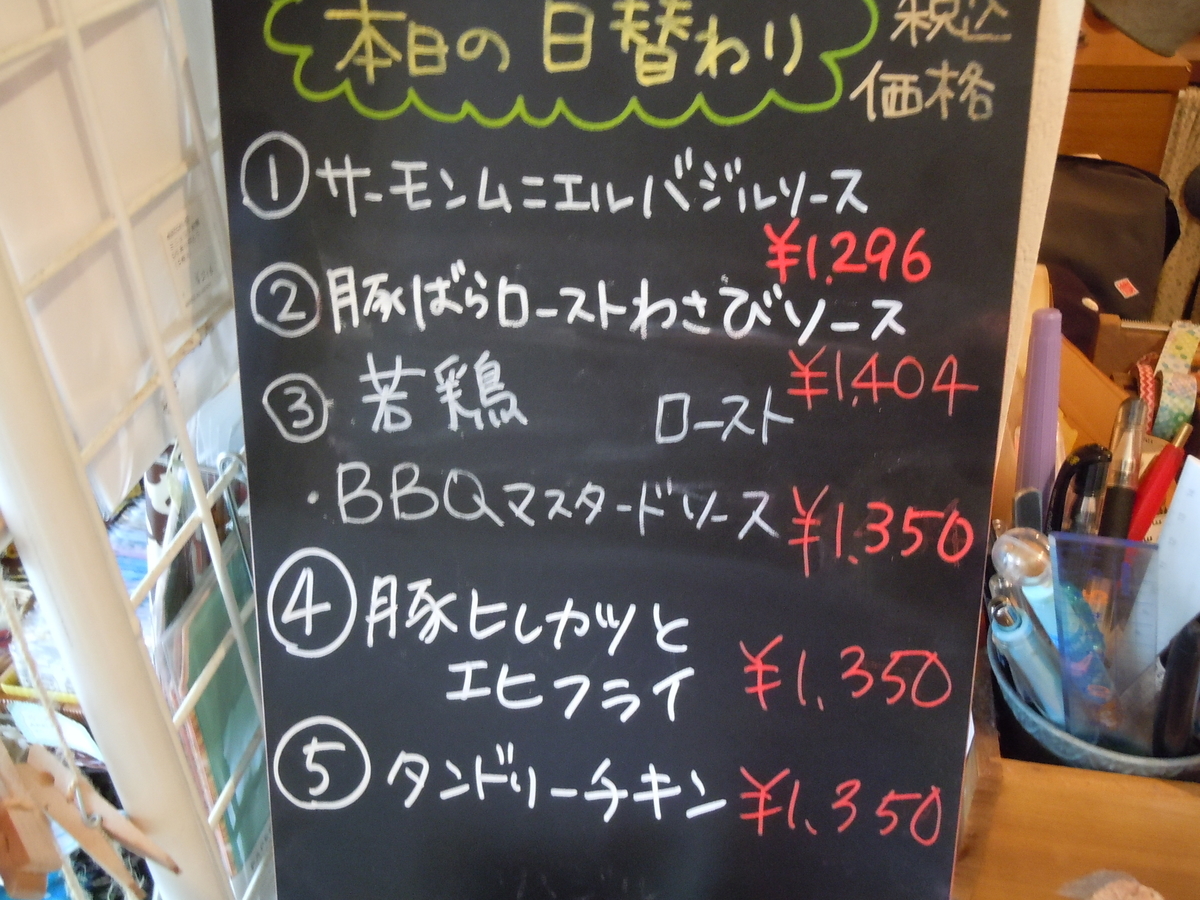 本日の日替わり
税込
価格
① サーモンムニエルバジルソース
¥1.296
② 豚ばらローストわさびソース
¥1,404
③ 若鶏 ロースト
・BBQマスタードソース ¥1.350
④ 豚ヒレカツと
エヒフライ ¥1.350
⑤ タンドリーチキン ¥1.350